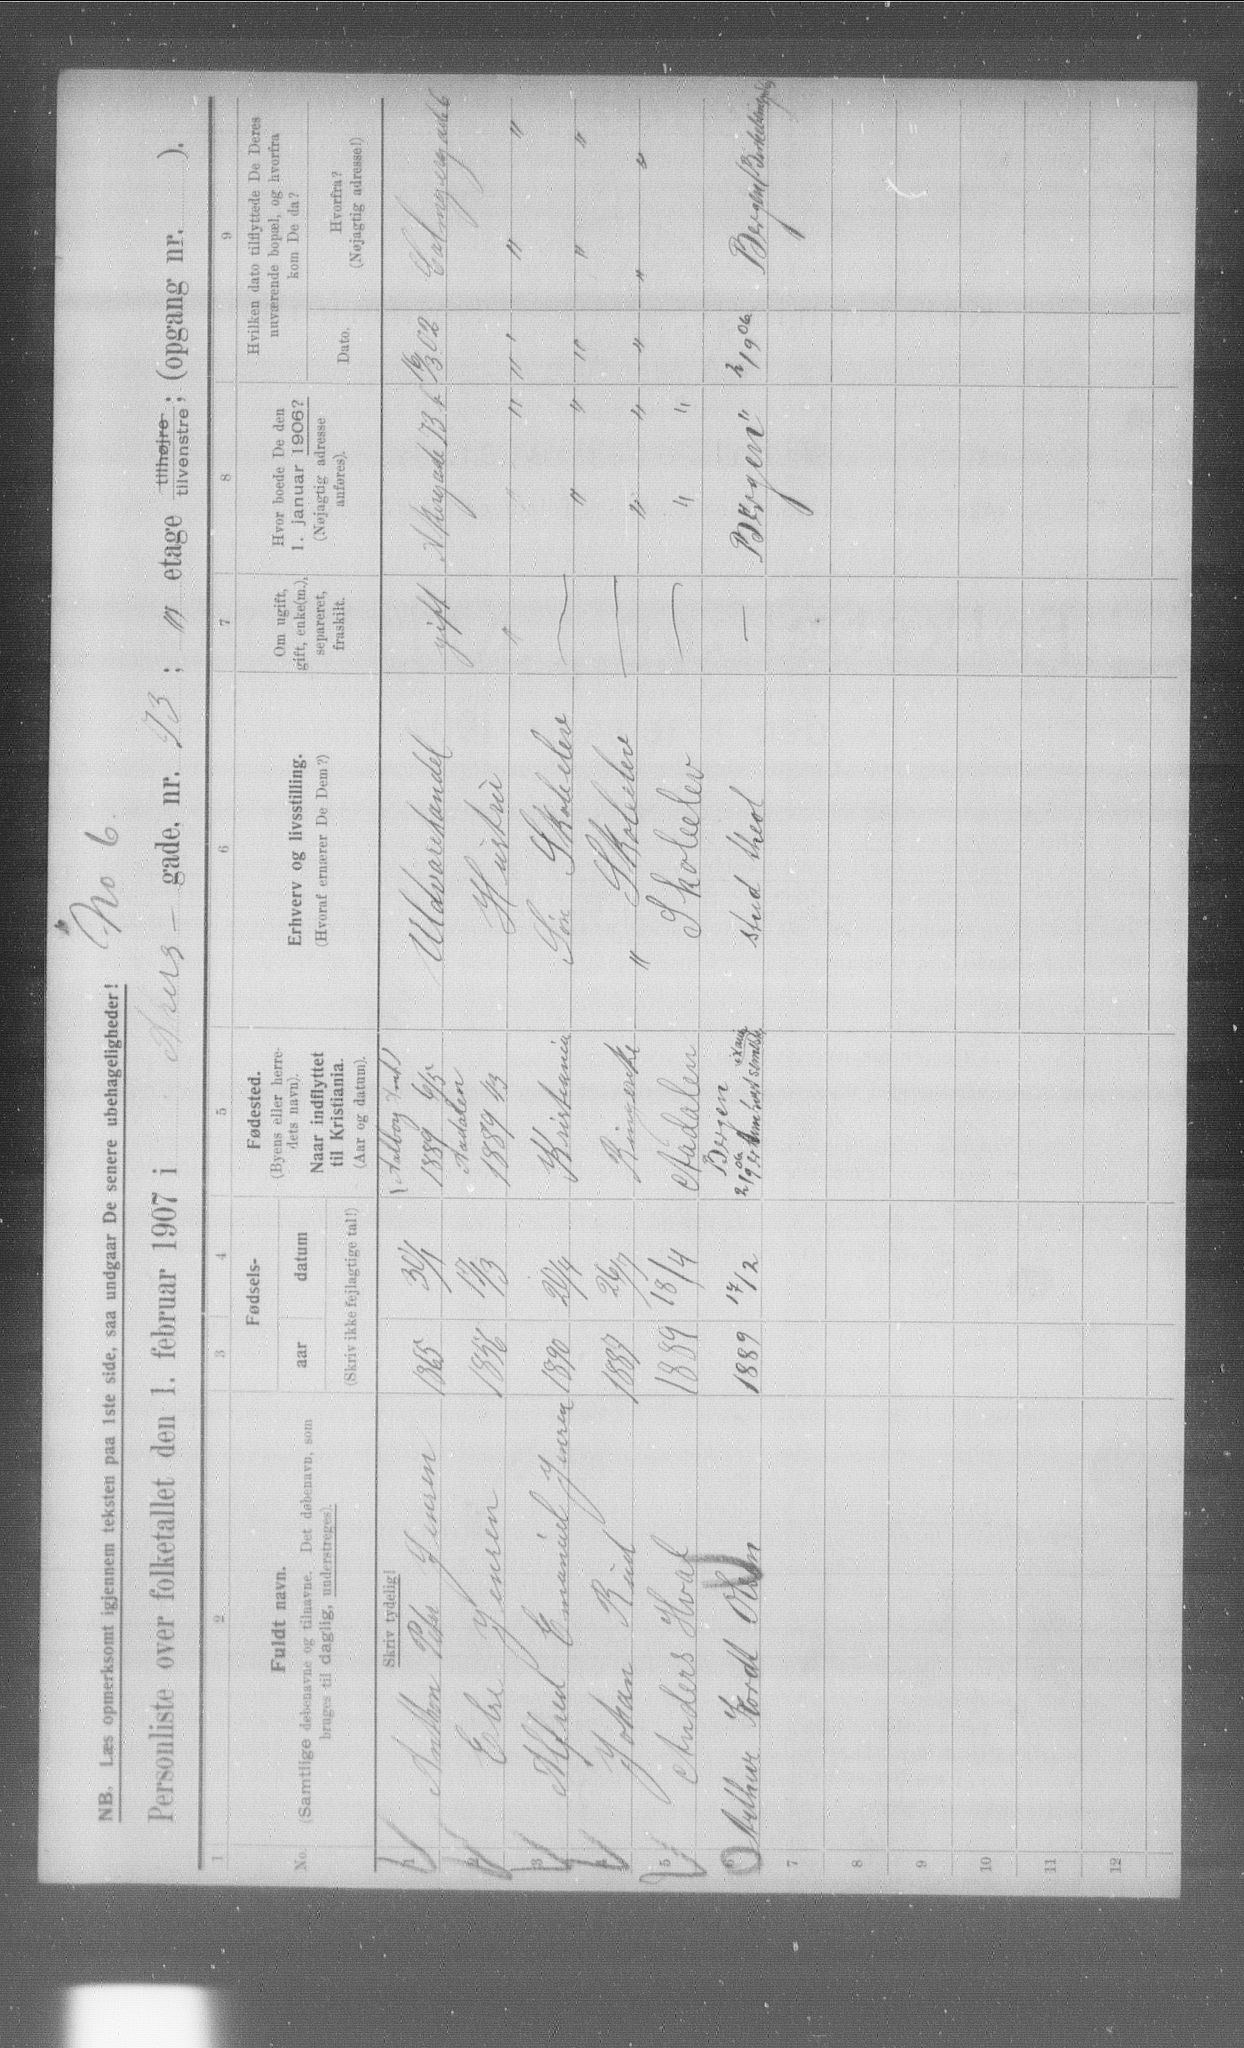 No 6.
NB. Læs opmerksomt igjennem teksten paa 1ste side, saa undgaar De senere ubehageligheder!
Personliste over folketallet den 1. februar 1907 i gade, nr. 73 ; etage tilhøjre tilvenstre ; (opgang nr. ).
1 2 3 4 5 6 7 8 9
No. Fuldt navn. (Samtlige døbenavne og tilnavne. Det døbenavn, som bruges til daglig, understreges).
Fødsels- aar datum (Skriv ikke fejlagtige tal!)
Fødested. (Byens eller herredets navn). Naar indflyttet til Kristiania. (Aar og datum).
Erhverv og livsstilling. (Hvoraf ernærer De Dem?)
Om ugift, gift, enke(m.), separeret, fraskilt.
Hvor boede De den 1. januar 1906? (Nøjagtig adresse anføres).
Hvilken dato tilflyttede De Deres nuværende bopæl, og hvorfra kom De da?
Dato. Hvorfra? (Nøjagtig adresse!)
Skriv tydelig!
1 Anthon Peter Jensen 1865 Aalborg Amt 1889 Uldvarehandel gift 02
2 Else Jensen Aadalen 1889 Hustru " " "
3 Alfred Emanuel Jensen 1890 20/4 Kristiania Søn Skoleelev — " " " " "
4 Johan Ruud 1887 26/7 Ringerike " Skoleelev — " " " " "
5 Anders Hval 1889 18/4 Aadalen Skoleelev — " "
6 Arthur Kordt Olsen 1889 17/2 Bergen stud theol — "Bergen" 2/1906 Bergen
7
8
9
10
11
12